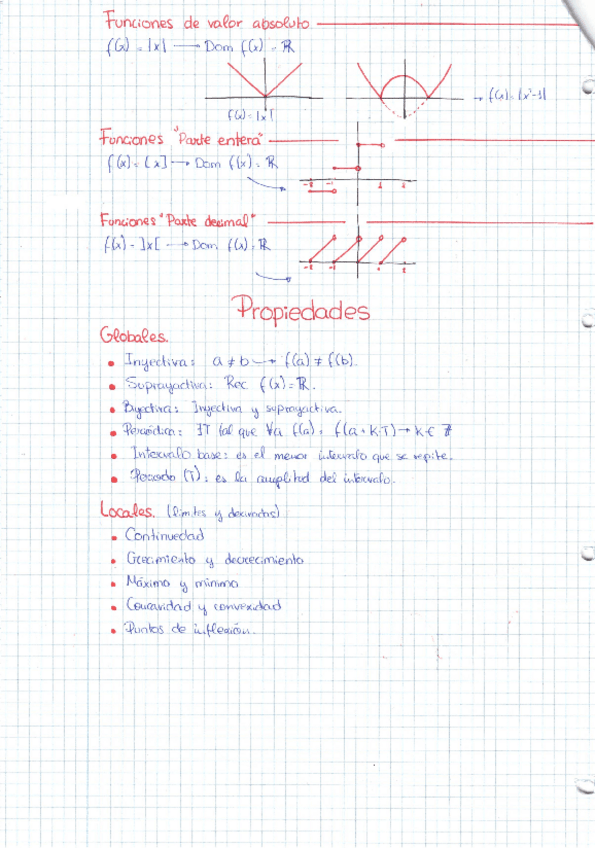 Funciones de valor absoluto
f(x) = |x| → Dom f(x) = ℝ
f(x) = |x|
→ f(x) = |x²-1|
Funciones "Parte entera"
f(x) = [x] → Dom f(x) = ℝ
-2 -1 1 2
Funciones "Parte decimal"
f(x) = ]x[ → Dom f(x) = ℝ
-2 -1 1 2
Propiedades
Globales.
• Inyectiva: a ≠ b → f(a) ≠ f(b).
• Suprayactiva: Rec f(x) = ℝ.
• Biyectiva: Inyectiva y suprayactiva.
• Periódica: ∃T tal que ∀a f(a) = f(a + K·T) → K ∈ ℤ
• Intervalo base: es el menor intervalo que se repite.
• Periodo (T): es la amplitud del intervalo.
Locales. (límites y derivadas)
• Continuedad
• Crecimiento y decrecimiento
• Máximo y mínimo
• Concavidad y convexidad
• Puntos de inflexión.